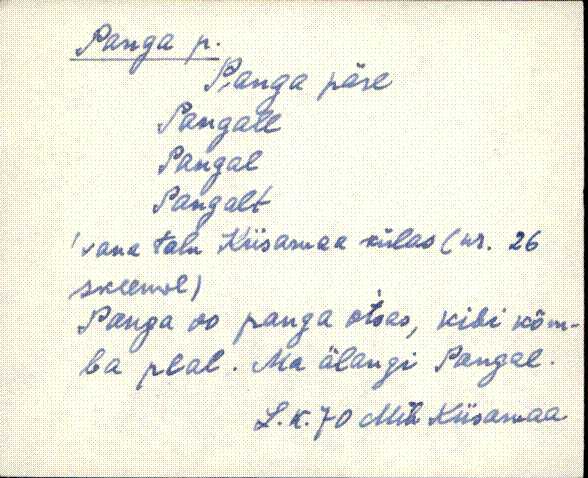 Panga p.
Panga päre
Pangall
Pangal
Pangalt
'vana talu Kiisamaa külas (nr. 26
skeemol)
Panga oo panga otsas, kibi kõm-
ba peal. Ma älangi Pangal.
L.K. 70 Mih Kiisamaa